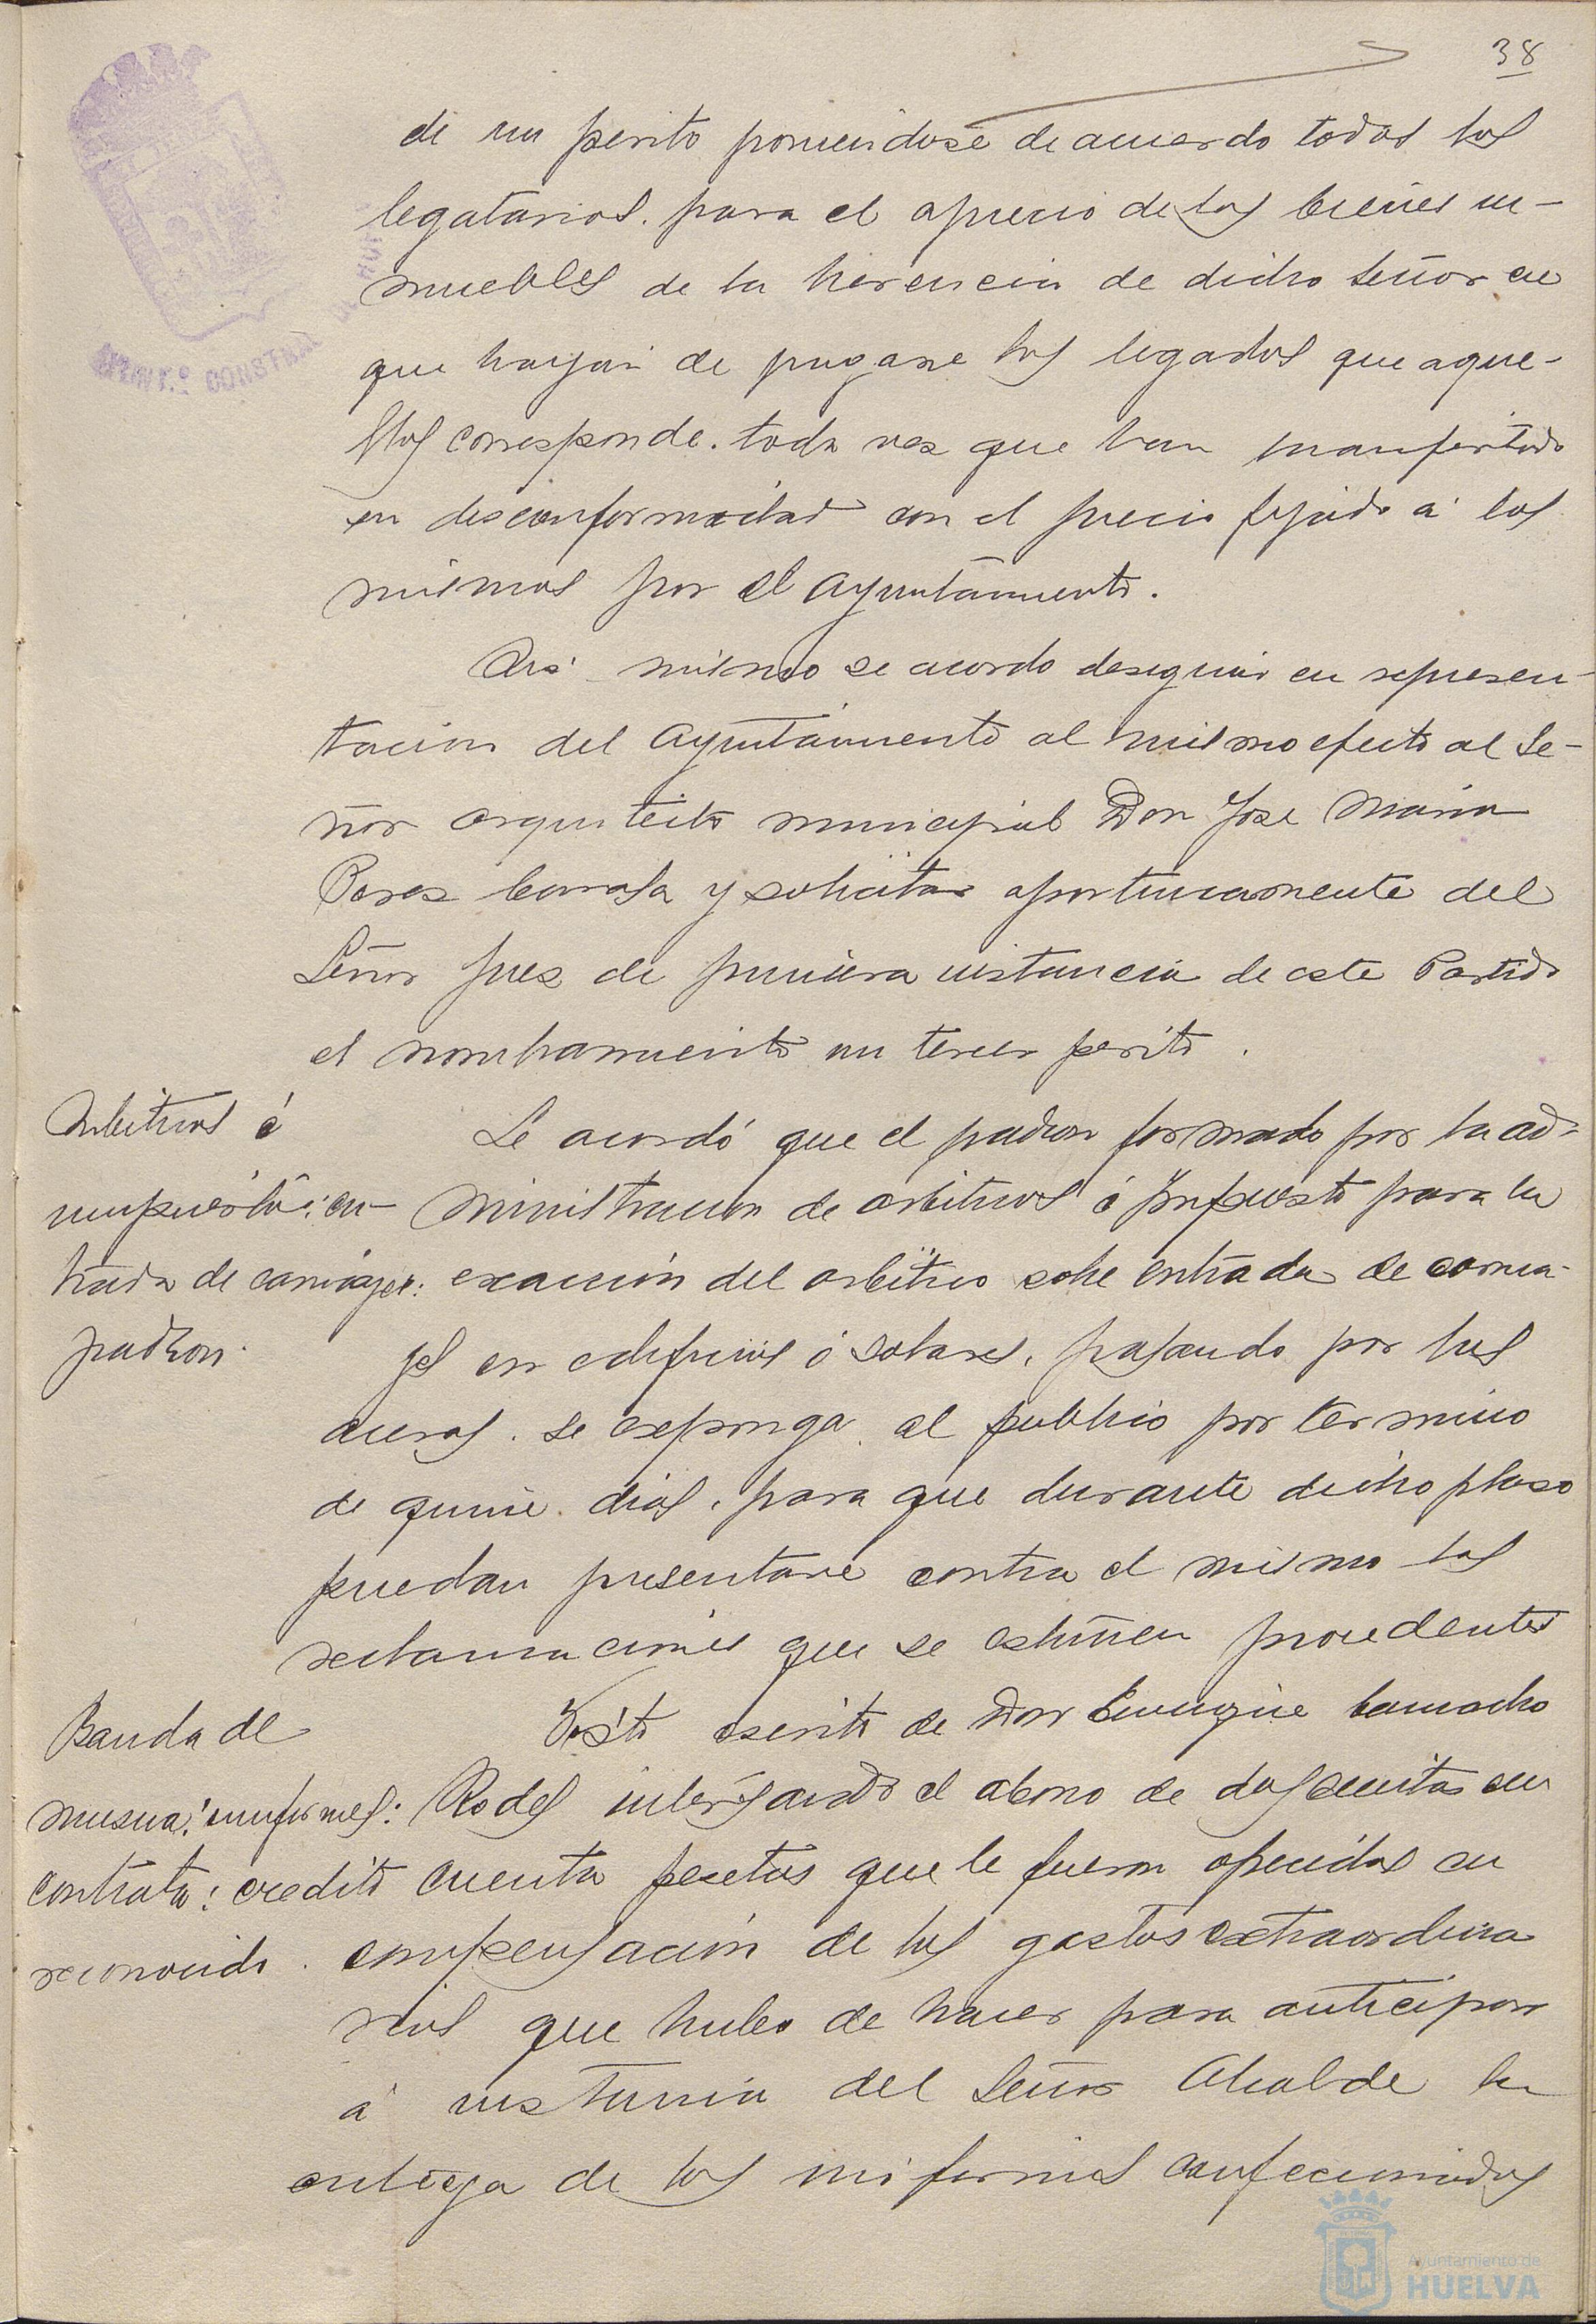 38
de un perito poniendose de acuerdo todos los
legatarios. para el aprecio de los bienes in-
muebles de la herencia de dicho Señor en
que hayan de pagarse los legados que aque-
llos corresponde. toda vez que han manifestado
su desconformidad con el precio fijado á los
mismos por el Ayuntamiento.
Asi mismo se acordo designar en represen-
tacion del Ayuntamiento al mismo efecto al Se-
ñor arquitecto municipal Don Jose Maria
Perez Carasa y solicitar oportunamente del
Señor Juez de primera instancia de este Partido
el nombramiento un tercer perito.
Arbitrios é
impuestos: en-
trada de carruajes:
padron.
Se acordó que el padron formado por la ad-
ministracion de arbitrios é Impuesto para la
exacción del arbitrio sobre entrada de carrua-
jes en edificios ó solares, pasando por las
aceras. se exponga al publico por termino
de quince dias, para que durante dicho plaso
puedan presentarse contra el mismo las
reclamaciones que se estimen procedentes
Banda de
musica: uniformes:
contrata: credito
reconocido.
Visto escrito de Don Enrique Camacho
Rodes interesando el abono de doscientas cin
cuenta pesetas que le fueron ofrecidas en
compensación de los gastos extraordina
rios que hubo de hacer para anticipar
á instancia del Señor Alcalde la
entrega de los uniformes confeccionados
AYUNT.º CONSTNAL
Ayuntamiento de
HUELVA